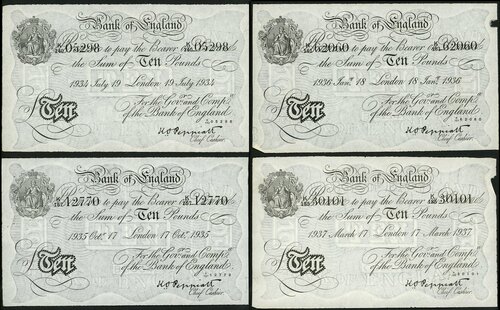 Bank of England
05298 to pay the Bearer 05298
the Sum of Ten Pounds
1934 July 19 London 19 July 1934
For the Govr. and Compa.
Ten of the Bank of England
K O Peppiatt
Chief Cashier.
Bank of England
62060 to pay the Bearer 62060
the Sum of Ten Pounds
1936 Jany. 18 London 18 Jany. 1936
For the Govr. and Compa.
Ten of the Bank of England
K O Peppiatt
Chief Cashier.
Bank of England
12770 to pay the Bearer 12770
the Sum of Ten Pounds
1935 Octr. 17 London 17 Octr. 1935
For the Govr. and Compa.
Ten of the Bank of England
K O Peppiatt
Chief Cashier.
Bank of England
30101 to pay the Bearer 30101
the Sum of Ten Pounds
1937 March 17 London 17 March 1937
For the Govr. and Compa.
Ten of the Bank of England
K O Peppiatt
Chief Cashier.